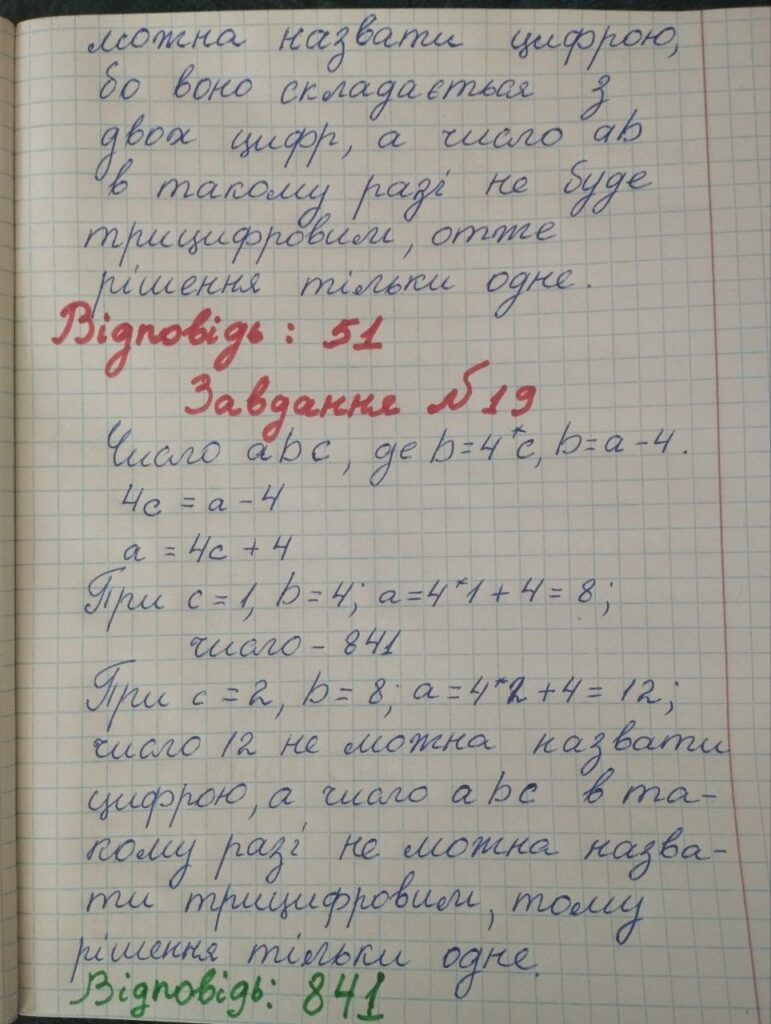 можна назвати цифрою,
бо воно складається з
двох цифр, а число ab
в такому разі не буде
трицифровим, отже
рішення тільки одне.
Відповідь: 51
Завдання №19
Число abc, де b=4*c, b=a-4.
4c = a-4
a = 4c + 4
При c=1, b=4; a=4*1+4=8;
число - 841
При c=2, b=8; a=4*2+4=12;
число 12 не можна назвати
цифрою, а число abc в та-
кому разі не можна назва-
ти трицифровим, тому
рішення тільки одне.
Відповідь: 841